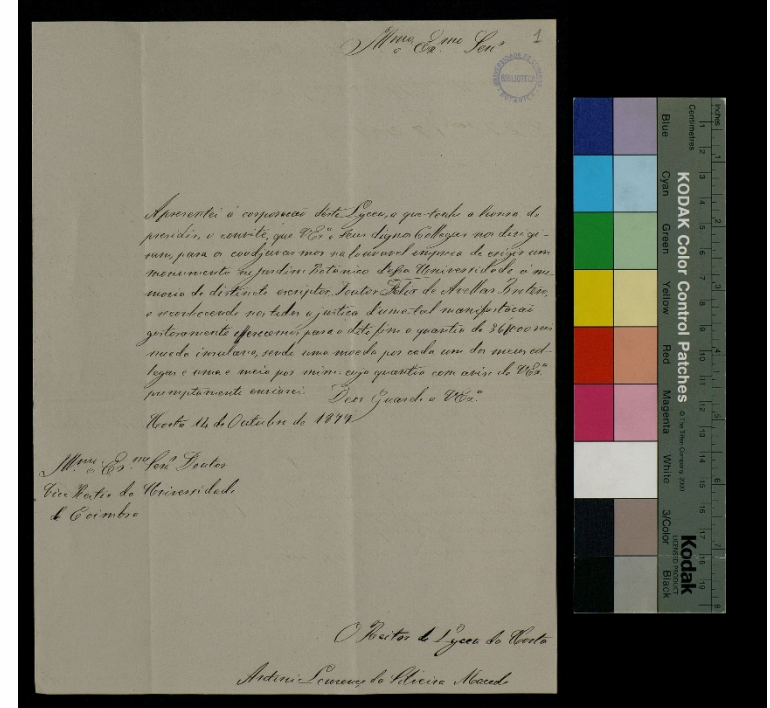 Illmo e Exmo Senr
1
UNIVERSIDADE DE COIMBRA
BIBLIOTECA
BOTANICA
Apresentei á corporação deste Lyceu, a que tenho a honra de
presidir, o convite, que V Exa e seus dignos Collegas nos dirigi-
ram, para os coadjuvarmos na louvavel empresa de erigir um
monumento no Jardim Botanico dessa Universidade á me-
moria do distincto escriptor Doutor Felix de Avellar Brotero,
e reconhecendo nos todos a justiça d'uma tal manifestação
gostosamente offerecemos para o dito fim a quantia de 36$000 reis
moeda insulana, sendo uma moeda por cada um dos meus col-
legas e uma e meia por mim: cuja quantia com aviso de V Exa
promptamente enviarei. Deos Guarde a V Exa
Horta 14 de Outubro de 1879
Illmo e Exmo Senr Doutor
Vice Reitor da Universidade
de Coimbra
O Reitor do Lyceu da Horta
Lourenço da Silveira Macedo
Inches
Centimetres
KODAK Color Control Patches
© The Tiffen Company, 2000
Kodak
LICENSED PRODUCT
Blue
Cyan
Green
Yellow
Red
Magenta
White
3/Color
Black